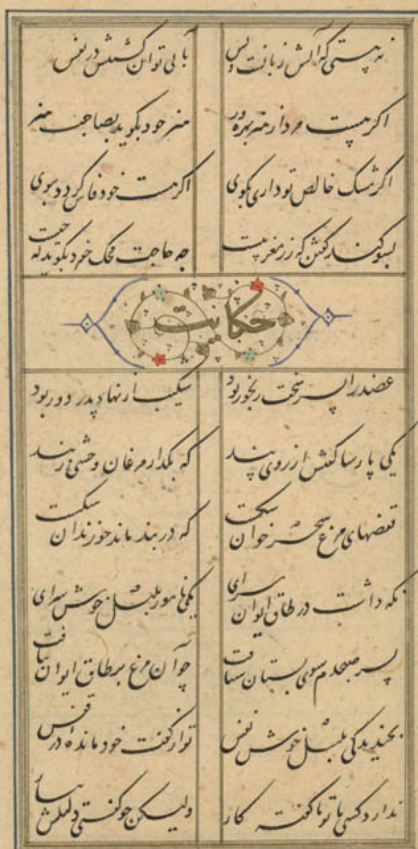 نه پستی که آتش زبانست و بس بآبی توان کشتنش در نفس
اگر هست مرد از هنر بهره ور هنر خود بگوید بصاحب هنر
اگر مشک خالص تو داری مگوی اگر هست خود فاش گردد ببوی
بسوگند گفتن که زر مغربیست چه حاجت محک خود بگوید که چیست
حکایت
عضد را پسر سخت رنجور بود شکیب از نهاد پدر دور بود
یکی پارسا گفتش از روی پند که بگذار مرغان وحشی ز بند
قفسهای مرغ سحر خوان شکست که در بند ماند چو زندان شکست
نگه داشت در طاق ایوان سرای یکی نامور بلبل خوش سرای
پسر صبحدم سوی بستان شتافت جز آن مرغ بر طاق ایوان نیافت
بخندید کای بلبل خوش نفس تو از گفت خود مانده در قفس
ندارد کسی با تو ناگفته کار ولیکن چو گفتی دلیلش بیار